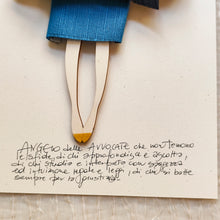 ANGELO delle AVVOCATE che non temono
le sfide, di chi approfondisce e ascolta,
di chi studia e interpreta con saggezza
ed intuizione regole e leggi, di chi si batte
sempre per la giustizia.